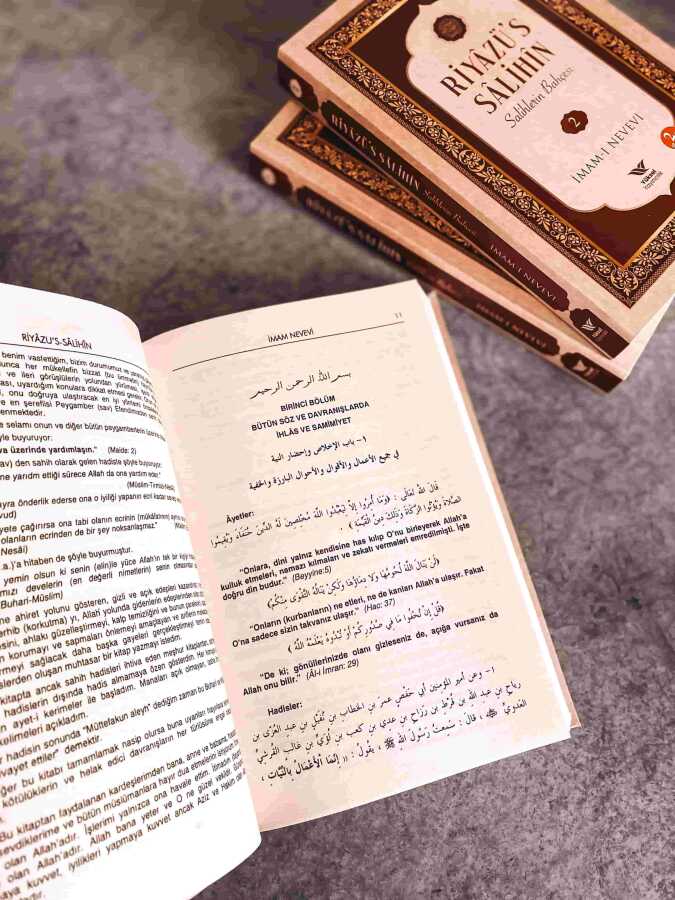 RİYÂZÜ'S
SÂLİHÎN
Salihlerin Bahçesi
2
İMAM-I NEVEVİ
2
yüksel
yayıncılık
RİYÂZÜ'S-SÂLİHÎN
Salihlerin Bahçesi
İMAM-I NEVEVİ
İMAM-I NEVEVİ
RİYÂZU'S-SÂLİHÎN
benim vasfettiğim, bizim durumumuz ve
her mükellefin bizzat
ve ileri görüşlülerin yolundan yürümesi,
uyardığım konulara dikkat etmesi gerekir.
onu doğruya ulaştıracak en iyi yöntem,
ve en şereflisi Peygamber (sav) Efendimizden
selamı onun ve diğer bütün peygamberlerin üzerine
buyuruyor:
üzerinde yardımlaşın." (Maide: 2)
den sahih olarak gelen hadiste şöyle buyuruyor:
yardım ettiği sürece Allah da ona yardım eder."
(Müslim-Tirmizi
önderlik ederse ona o iyiliği yapanın ecri kadar
çağırırsa ona tabi olanın ecrinin (mükâfatının)
olanların ecrinden de bir şey noksanlaşmaz."
Nesâi)
hitaben de şöyle buyurmuştur.
yemin olsun ki senin (elin)le yüce Allah'ın tek bir kişiyi
develerin (en değerli nimetlerin) senin olmasından
(Buhari-Müslim)
ahiret yolunu gösteren, gizli ve açık edepleri kazandıran
(korkutma) yı, Allah yolunda gidenlerin edeplerinden
ahlakı güzelleştirmeyi, kalp temizliğini ve bunun çarelerini,
korumayı ve sapmaları önlemeyi amaçlayan ve ariflerin
sağlayacak daha başka gayeleri gerçekleştirmeyi
oluşan muhtasar bir kitap yazmayı istedim.
kitapta ancak sahih hadisleri ihtiva eden meşhur kitaplardan
hadislerin dışında hadis almamaya özen gösterdim. Her
ayet-i kerimeler ile başladım. Manaları açık olmayan,
kelimeleri açıkladım.
hadisin sonunda "Müttefakun âleyh" dediğim zaman bu Buhari ve
ettiler" demektir.
bu kitabı tamamlamak nasip olursa buna uyanları hayırlara
kötülüklerin ve helak edici davranışların her türlüsüne engel
Bu kitaptan faydalanan kardeşlerimden bana, anne ve babama,
sevdiklerime ve bütün müslümanlara hayır dua etmelerini istiyorum.
olan Allah'adır. İşlerimi yalnızca ona havale ettim. İtimadım
olan Allah'adır. Allah bana yeter ve O ne güzel vekildir.
kuvvet, iyilikleri yapmaya kuvvet ancak Aziz ve Hakim olan
İMAM NEVEVİ
11
بسم الله الرحمن الرحيم
BİRİNCİ BÖLÜM
BÜTÜN SÖZ VE DAVRANIŞLARDA
İHLÂS VE SAMİMİYET
١- باب الإخلاص وإحضار النية
في جميع الأعمال والأقوال والأحوال البارزة والخفية
Âyetler:
قَالَ اللهُ تَعَالَى : ﴿وَمَا أُمِرُوا إِلَّا لِيَعْبُدُوا اللَّهَ مُخْلِصِينَ لَهُ الدِّينَ حُنَفَاءَ وَيُقِيمُوا
الصَّلَاةَ وَيُؤْتُوا الزَّكَاةَ وَذَلِكَ دِينُ الْقَيِّمَةِ﴾ .
"Onlara, dini yalnız kendisine has kılıp O'nu birleyerek Allah'a
kulluk etmeleri, namazı kılmaları ve zekatı vermeleri emredilmişti. İşte
doğru din budur." (Beyyine:5)
﴿لَنْ يَنَالَ اللَّهَ لُحُومُهَا وَلَا دِمَاؤُهَا وَلَكِنْ يَنَالُهُ التَّقْوَى مِنْكُمْ﴾
"Onların (kurbanların) ne etleri, ne de kanları Allah'a ulaşır. Fakat
O'na sadece sizin takvanız ulaşır." (Hac: 37)
﴿قُلْ إِنْ تُخْفُوا مَا فِي صُدُورِكُمْ أَوْ تُبْدُوهُ يَعْلَمْهُ اللَّهُ﴾
"De ki; gönüllerinizde olanı gizleseniz de, açığa vursanız da
Allah onu bilir." (Âl-i İmran: 29)
Hadisler:
١- وعن أمير المؤمنين أبي حَفْصٍ عمرَ بنِ الخطاب بن نُفَيْل بنِ عبد العُزَّى بن
رياح بن عبد الله بن قُرْطِ بنِ رَزَاحِ بن عدي بن كعب بن لُؤَيِّ بن غالب القُرشيِّ
العدويِّ ﷺ ، قال : سَمِعْتُ رَسُولَ اللهِ ﷺ ، يقُولُ : «إِنَّمَا الأَعْمَالُ بِالنِّيَّاتِ ،